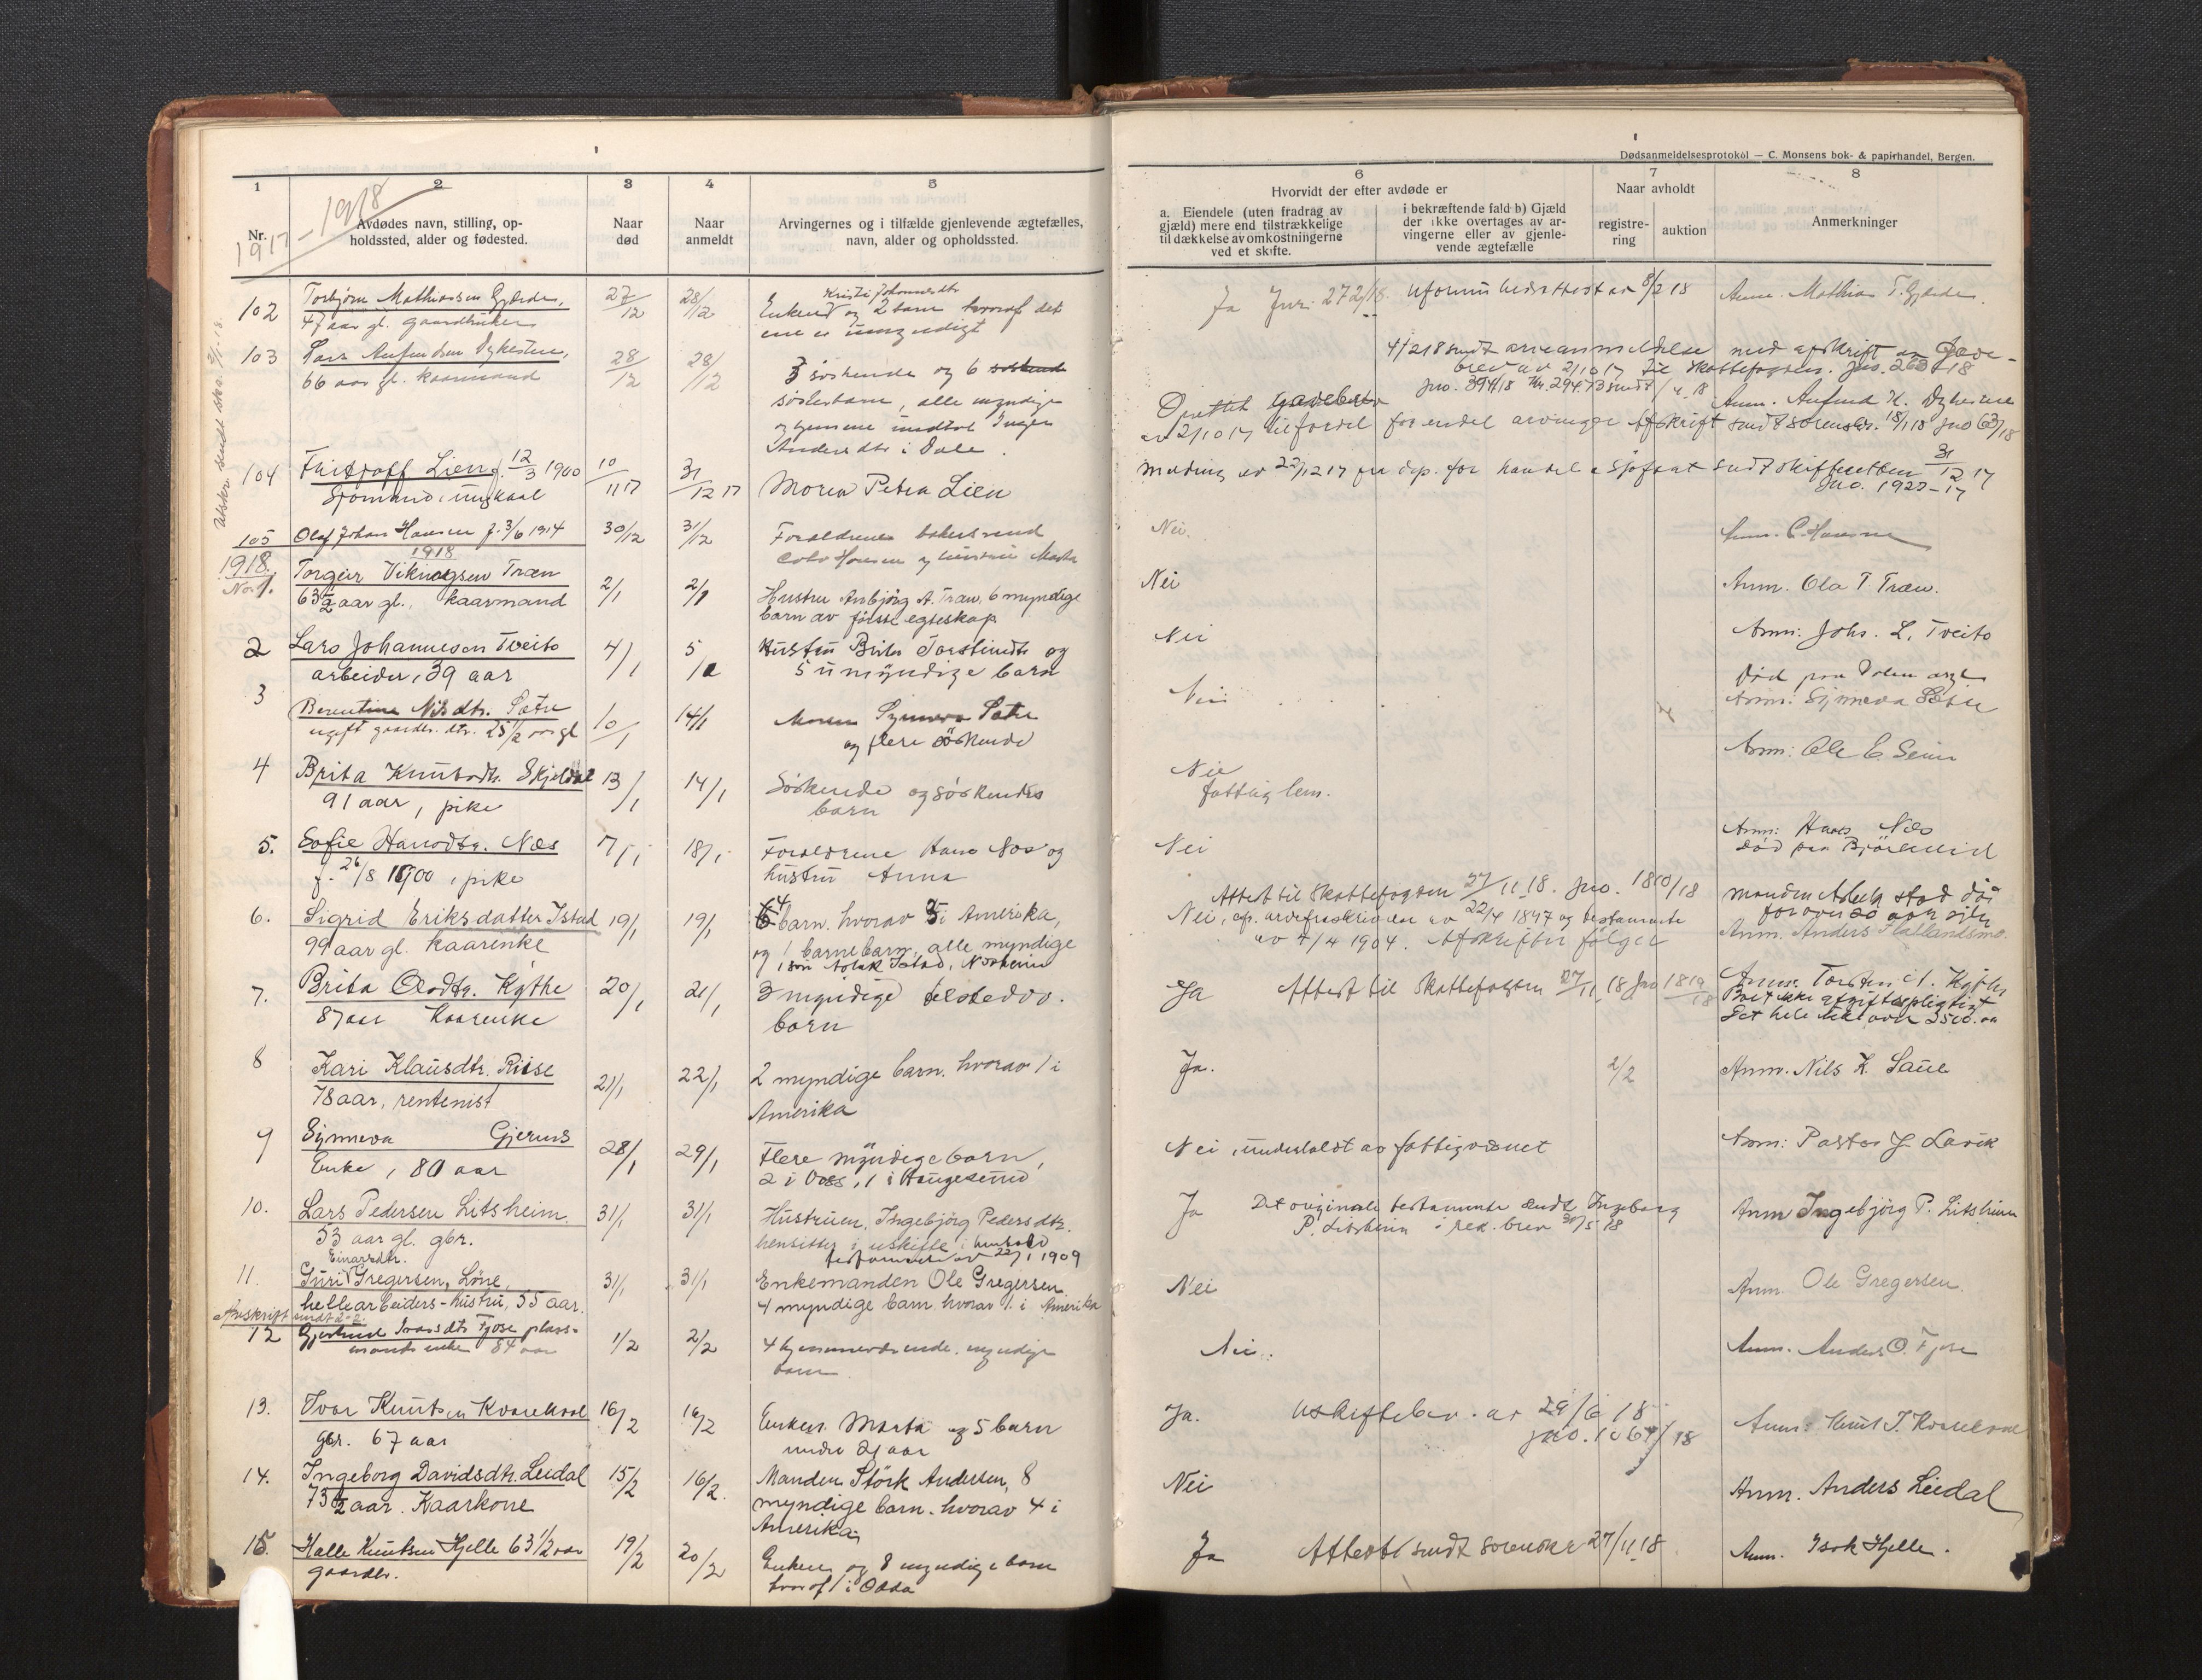 Dødsanmeldelsesprotokol — C. Monsens bok- & papirhandel, Bergen.
1 2 3 4 5
1917-1918
Nr.
Avdødes navn, stilling, op-
holdssted, alder og fødested.
Naar
død
Naar
anmeldt
Arvingernes og i tilfælde gjenlevende ægtefælles,
navn, alder og opholdssted.
6 7 8
Hvorvidt der efter avdøde er
a. Eiendele (uten fradrag av
gjæld) mere end tilstrækkelige
til dækkelse av omkostningerne
ved et skifte.
i bekræftende fald b) Gjæld
der ikke overtages av ar-
vingerne eller av gjenle-
vende ægtefælle
Naar avholdt
registre-
ring
auktion
Anmerkninger
102 Torbjørn Mathiassen Gjerde, 27/12 28/12 Enken og 2 barn hvoraf det Ja Jnr. 272/18 8/2 18 Anm. Mathias T. Gjerde
47 aar gl. gaardbruker ene er umyndigt
103 Lars 28/12 28/12 5 søskende og 6
66 aar gl. kaarmand
søskenbarn, alle myndige
og hjemme undtat Inger
Andersdtr i Dale.
4/2 18 sendt arveanmeldelse med afskrift av Gave-
brev av 2/10 17 til Skattefogden.
Oprettet Gavebrev
av 2/10 17 til fordel for endel arvinger Afskrift sendt sorenskr. 18/1 18 Jno 63/18
104 Lien f. 12/3 1900 10/11 17 31/12 17 Moren Petra Lien
Sjømand, ungkarl
Melding av 22/12 17 fra dep. for handel & sjøfart sendt skifteretten 31/12 17
Jno. 1923-17
105 Olaf Johan Hansen f. 3/6 1914 30/12 31/12 Forældrene Nei. Anm. C. Hansen
Hansen og hustru Marta
1918
1918.
No. 1. Torgeir Træn 2/1 2/1 Hustru A. Træn, 6 myndige Nei Anm. Ola T. Træn.
63 1/2 aar gl., kaarmand barn av første egteskap
2 Lars Johannesen Tveito 4/1 5/1 Hustru Brita Torsteindtr og Nei Anm: Johs. L. Tveito
arbeider, 39 aar 5 umyndige barn
3 Berentine Nilsdtr. Sætre 10/1 14/1 Moren Synneva Sætre Nei Anm: Synneva Sætre
ugift gaardbr. dtr. 25 1/2 aar gl og flere søskende
4 Brita Knutsdtr. Skjeldal 13/1 14/1 Søskende og søskendes Nei Anm: Ole E Seim
91 aar, pike barn fattiglem.
5. Sofie Hansdtr. Næs 17/1 18/1 Forældrene Hans Næs og Nei Anm: Hans Næs
f. 26/8 1900, pike hustru Anna død paa
Attest til Skattefogden 27/11 18. Jno. 1810/18
6. Sigrid Eriksdatter Istad 19/1 19/1 4 barn, hvorav 3 i Amerika,
99 aar gl. kaarenke og 1 barnebarn, alle myndige
1 søn Aslak Istad,
Nei, cfr. arvefraskrivelse av 22/4 1897 og testamente
av 7/4 1904. Afskrifter følger
Manden Aslak Istad dø
for over 20 aar siden
Anm. Anders
7. Brita Olsdtr. Kythe 20/1 21/1 3 myndige tilstedev. Ja Attest til Skattefogden 27/11 18 Jno 1819/18 Anm. Torsten A. Kythe
87 aar Kaarenke barn
Boet ikke afgiftspligtigt
8 Kari Klausdtr. Risse 21/1 22/1 2 myndige barn, hvorav 1 i Ja. 2/2 Anm. Nils K. Saue
78 aar, rentenist Amerika
9 Synneva Gjernes 28/1 29/1 Flere myndige barn, Nei, underholdt av fattigvæsnet Anm: Pastor J Lavik
Enke, 80 aar 2 i Voss, 1 i Haugesund
10. Lars Pedersen Litsheim 31/1 31/1 Hustruen, Ingebjørg Pedersdtr. Ja Det originale testamente sendt Ingeborg Anm Ingebjørg P. Litsheim
53 aar gl. gbr. hensitter i uskifte i henhold P. Litsheim i rek. brev 30/5 18
testamente av 22/1 1909
Einarsdtr.
11. Guri Gregersen, Løne, 31/1 31/1 Enkemanden Ole Gregersen Nei Anm. Ole Gregersen
hellearbeiders-hustru, 55 aar. 4 myndige barn, hvorav 1 i Amerika
12 Gjertrud Ivarsdtr Fjose plass- 1/2 2/2 4 hjemmeværende, myndige Nei. Anm. Anders O. Fjose
mands enke 84 aar barn
13. Ivar Knutsen 16/2 16/2 Enken Marta og 5 barn Ja. Uskiftebev. av 29/6 18
gbr. 67 aar under 21 aar Jno. 1064/18
14. Ingeborg Davidsdtr. Leidal 15/2 16/2. Manden Størk Andersen, 8 Nei Anm. Anders Leidal
73 1/2 aar. Kaarkone myndige barn, hvorav 4 i
Amerika
15. Halle Knutsen Hjelle 63 1/2 aar 19/2 20/2 Enken og 8 myndige barn Ja Attest sendt sorenskr 27/11 18 Anm. Isak Hjelle.
gaardbr. hvoraf 1 i Odda